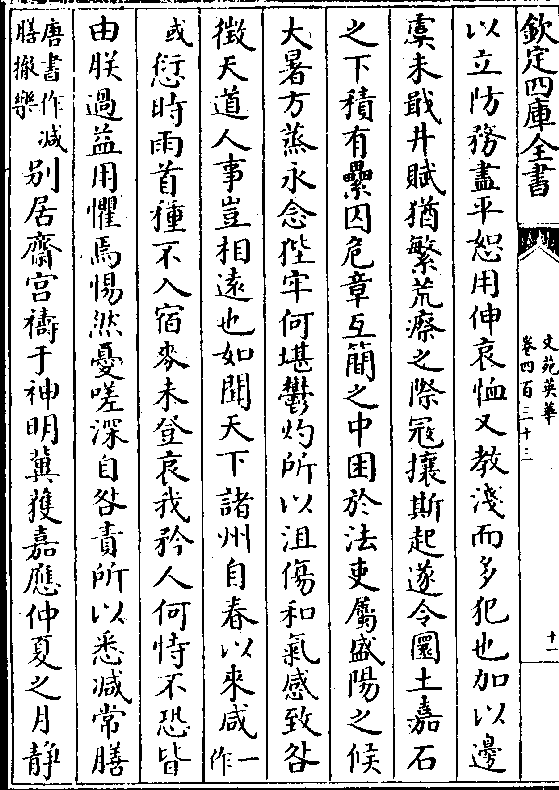 欽定四庫全書
文苑英華
卷四百三十三
十一
以立防務盡平恕用伸哀恤又教淺而多犯也加以邊
虞未戢井賦猶繁荒瘵之際寇攘斯起遂令圜土嘉石
之下積有纍囚危章互簡之中困於法吏屬盛陽之候
大暑方蒸永念狴牢何堪鬱灼所以沮傷和氣感致咎
徵天道人事豈相遠也如聞天下諸州自春以來咸一作
或愆時雨首種不入宿麥未登哀我矜人何恃不恐皆
由朕過益用懼焉惕然憂嗟深自咎責所以悉减常膳
唐書作减膳撤樂别居齋宫禱于神明冀獲嘉應仲夏之月靜